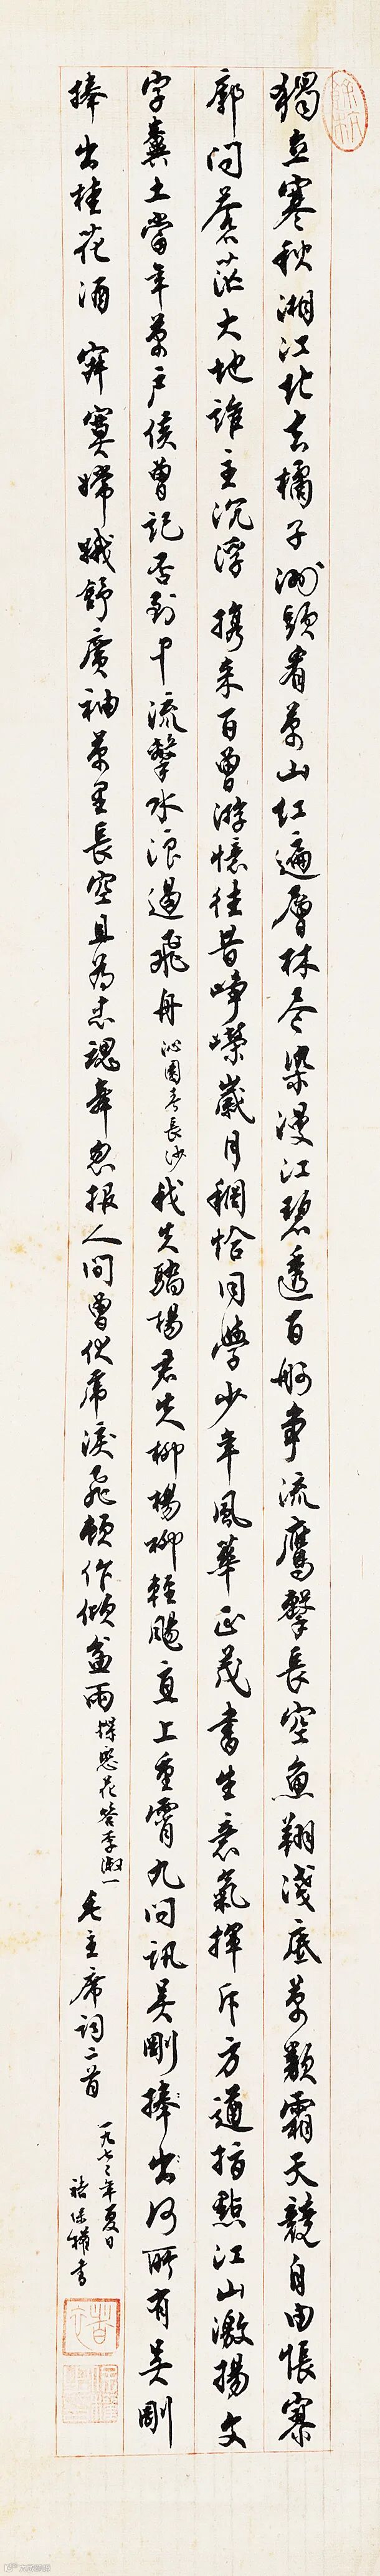 獨立寒秋湘江北去橘子洲頭看萬山紅遍層林尽染漫江碧透百舸爭流鷹擊長空魚翔淺底萬類霜天競自由悵寥
廓問蒼茫大地誰主沉浮 携来百曾游憶往昔崢嶸歲月稠恰同學少年風華正茂書生意氣揮斥方遒指點江山激揚文
字糞土當年萬户侯曾記否到中流擊水浪遏飛舟 沁園春長沙 我失驕楊君失柳楊柳輕颺直上重霄九問訊吴剛捧出何所有吴剛
捧出桂花酒 寂寞嫦娥舒廣袖萬里長空且為忠魂舞忽報人間曾伏虎淚飛頓作傾盆雨 蝶戀花答李淑一 毛主席詞二首
一九七二年夏日
褚保權書